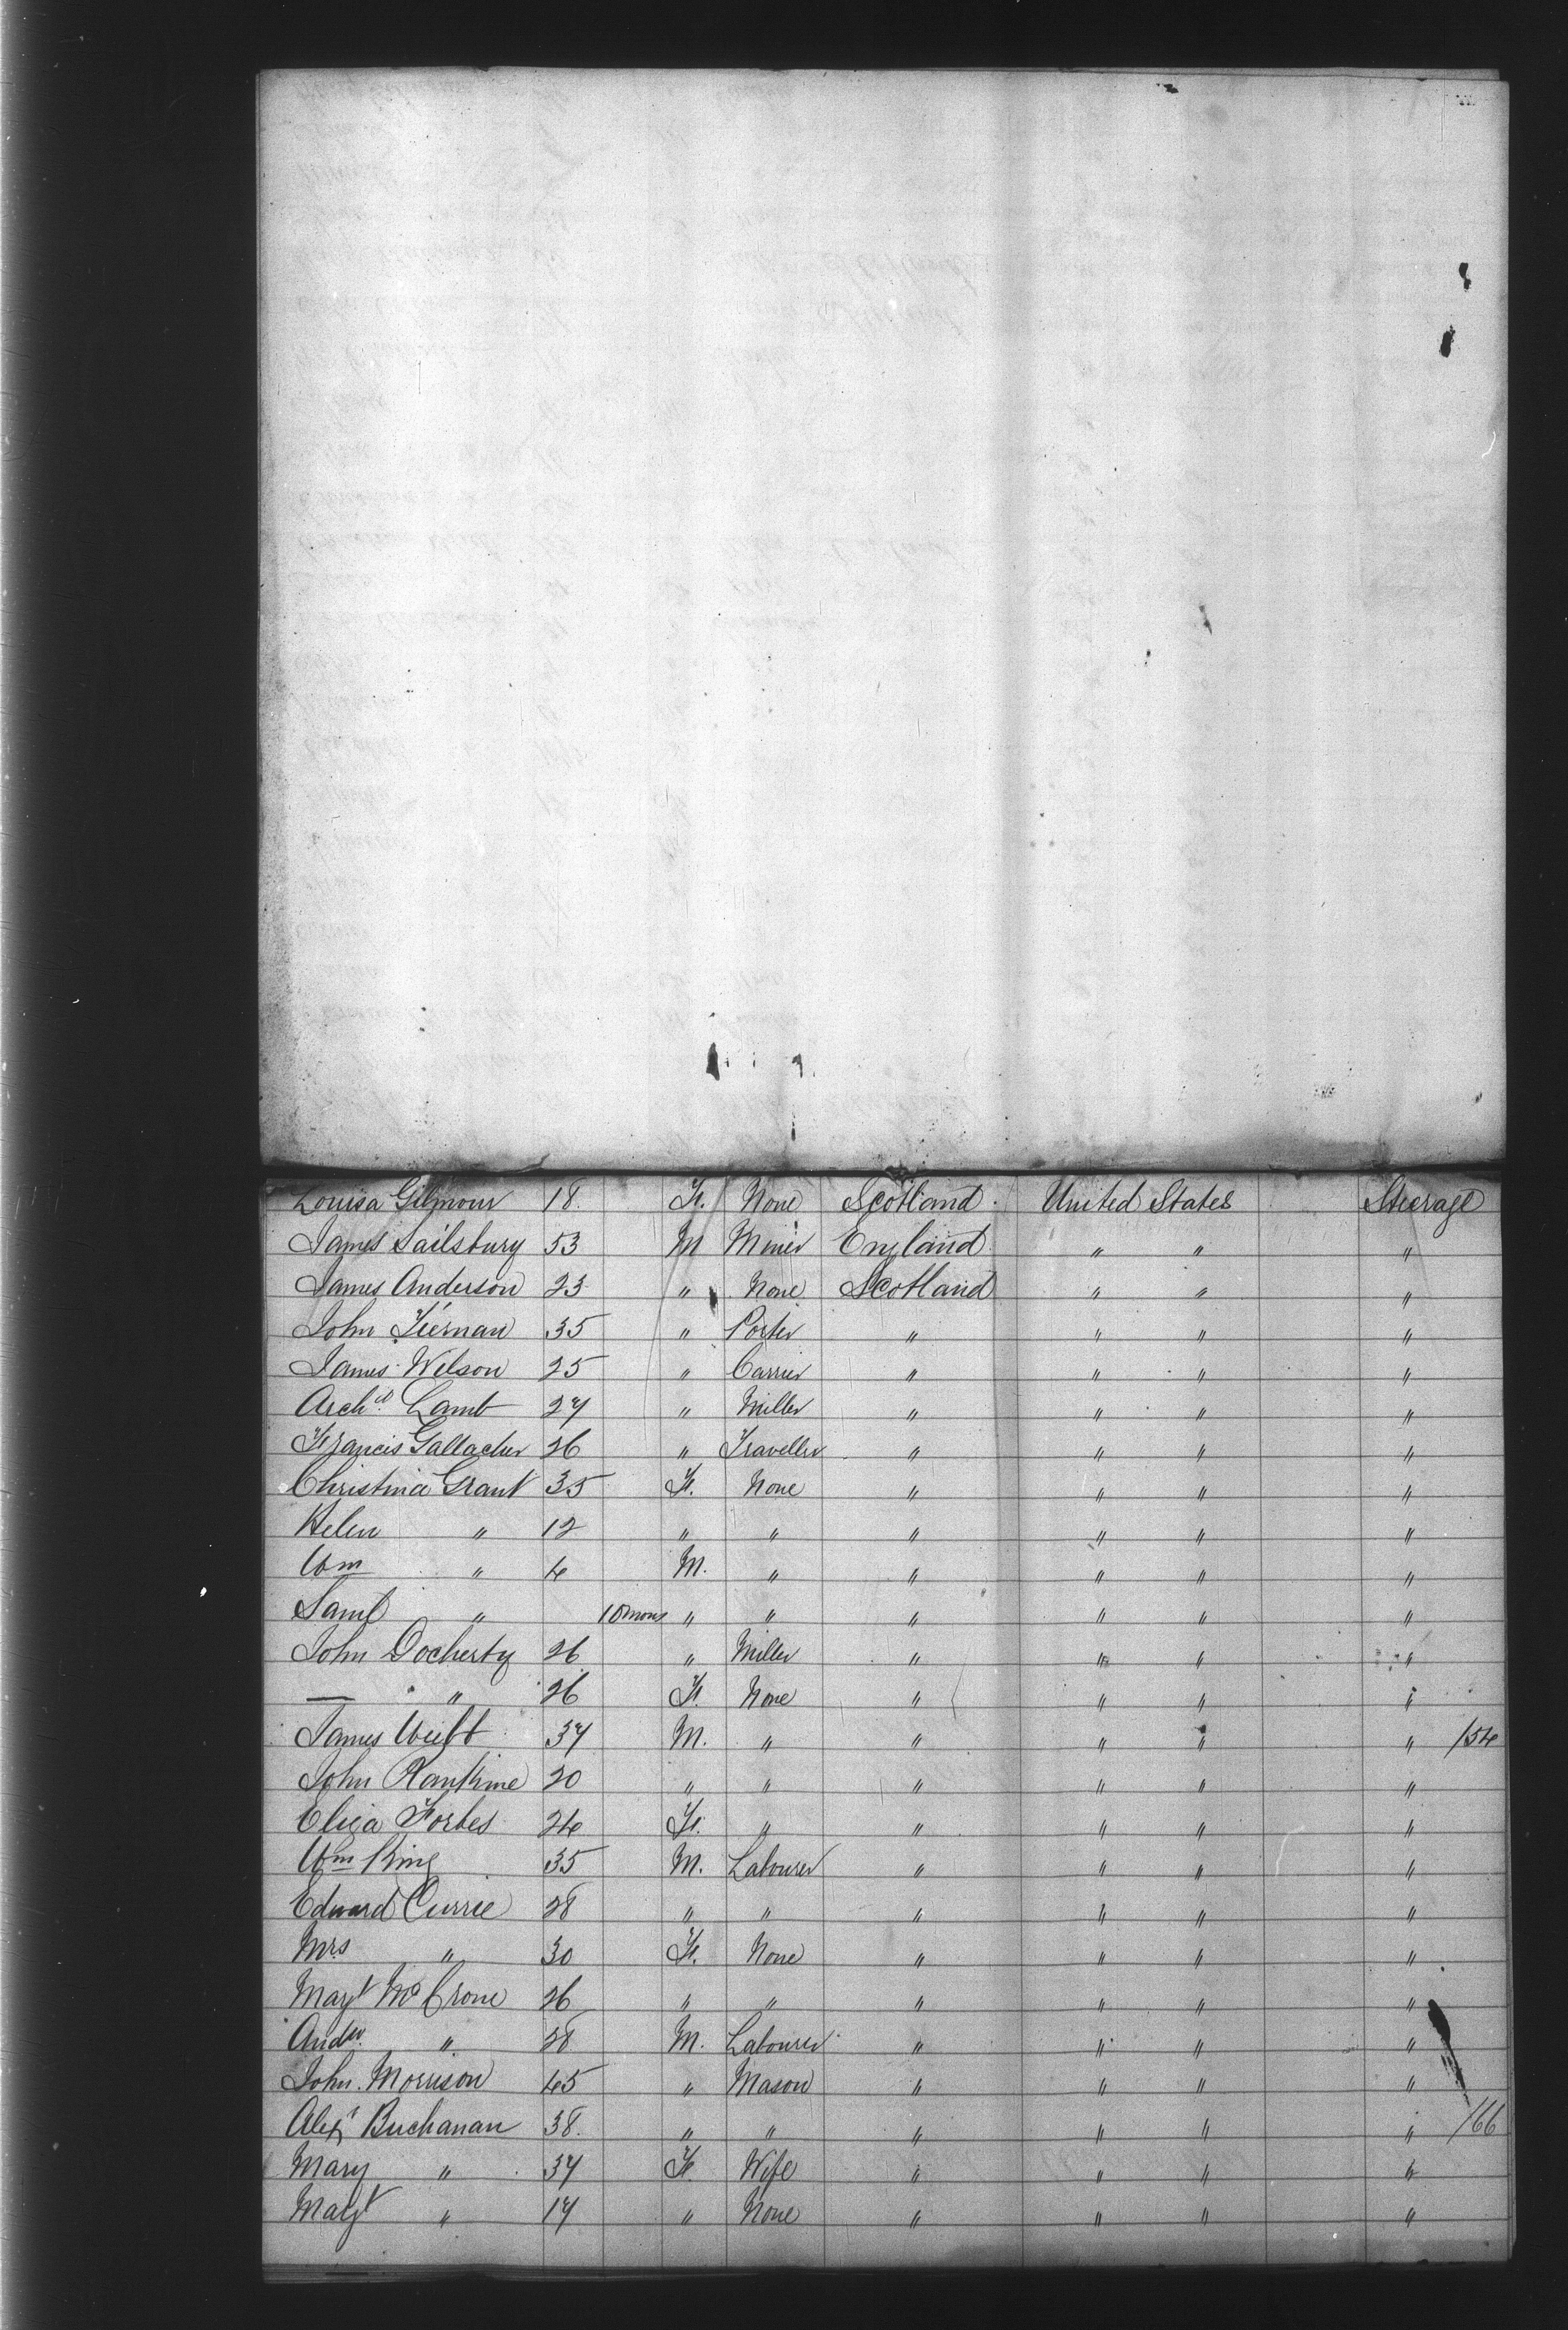 Louisa Gilmour 18. F. None Scotland. United States Steerage
James Sailsbury 53 M Miner England " " "
James Anderson 23 " None Scotland " " "
John Tiernan 35 " Porter " " " "
James Wilson 25 " Carrier " " " "
Archd. Lamb 27 " Miller " " " "
Francis Gallacher 26 " Traveller " " " "
Christina Grant 35 F. None " " " "
Helen " 12 " " " " " "
Wm " 4 M. " " " " "
Saml " 10 mons " " " " " "
John Docherty 26 " Miller " " " "
— " 26 F. None " " " "
James 37 M. " " " " " 154
John Rankine 20 " " " " " "
Eliza Forbes 24 F. " " " " "
Wm King 35 M. Labourer " " " "
Edward Currie 28 " " " " " "
Mrs " 30 F. None " " " "
Margt McCrone 26 " " " " " "
Andw. " 28 M. Labourer " " " "
John Morrison 45 " Mason " " " "
Alexr Buchanan 38. " " " " " " 166
Mary " 37 F. Wife " " " "
Margt " 17 " None " " " "